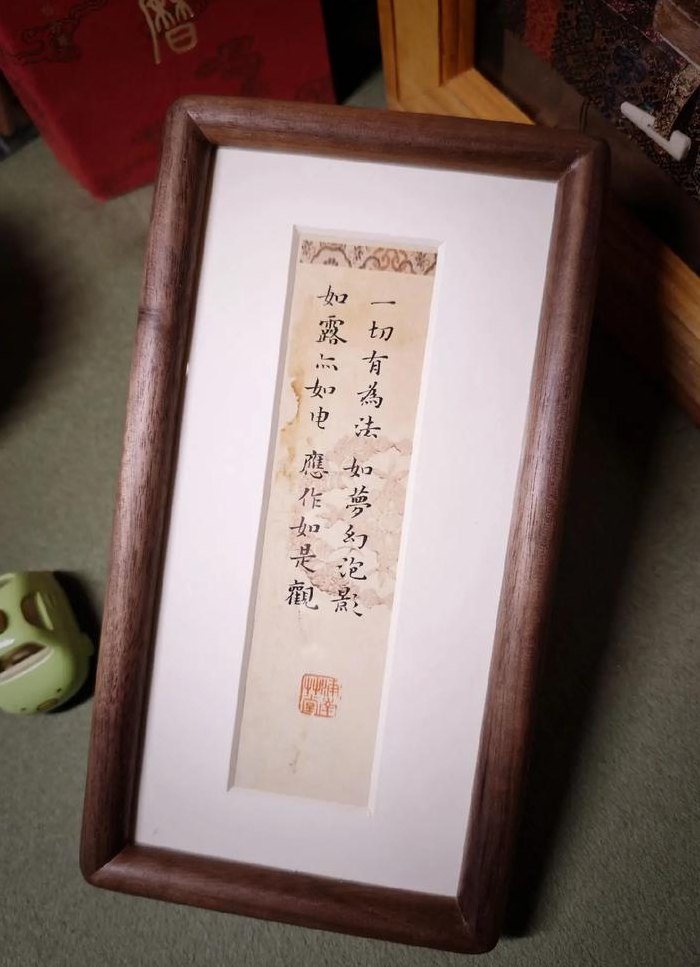 一切有為法 如夢幻泡影
如露亦如电 應作如是觀
曆